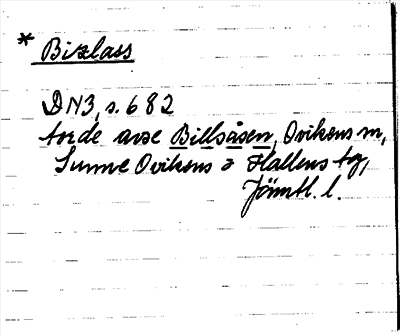 * Bizlass
DN3, s. 682
torde avse Billsåsen, Ovikens sn,
Sunne Ovikens o Hallens tg,
Jämtl. l.